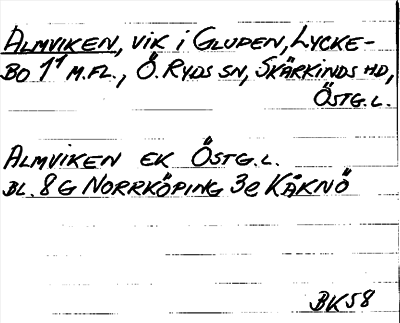 ALMVIKEN, VIK I GLUPEN, LYCKE-
BO 1¹ M.FL., Ö. RYDS SN, SKÄRKINDS HD,
ÖSTG.L.
ALMVIKEN EK ÖSTG.L.
BL. 8G NORRKÖPING 3e KÅKNÖ
BK58